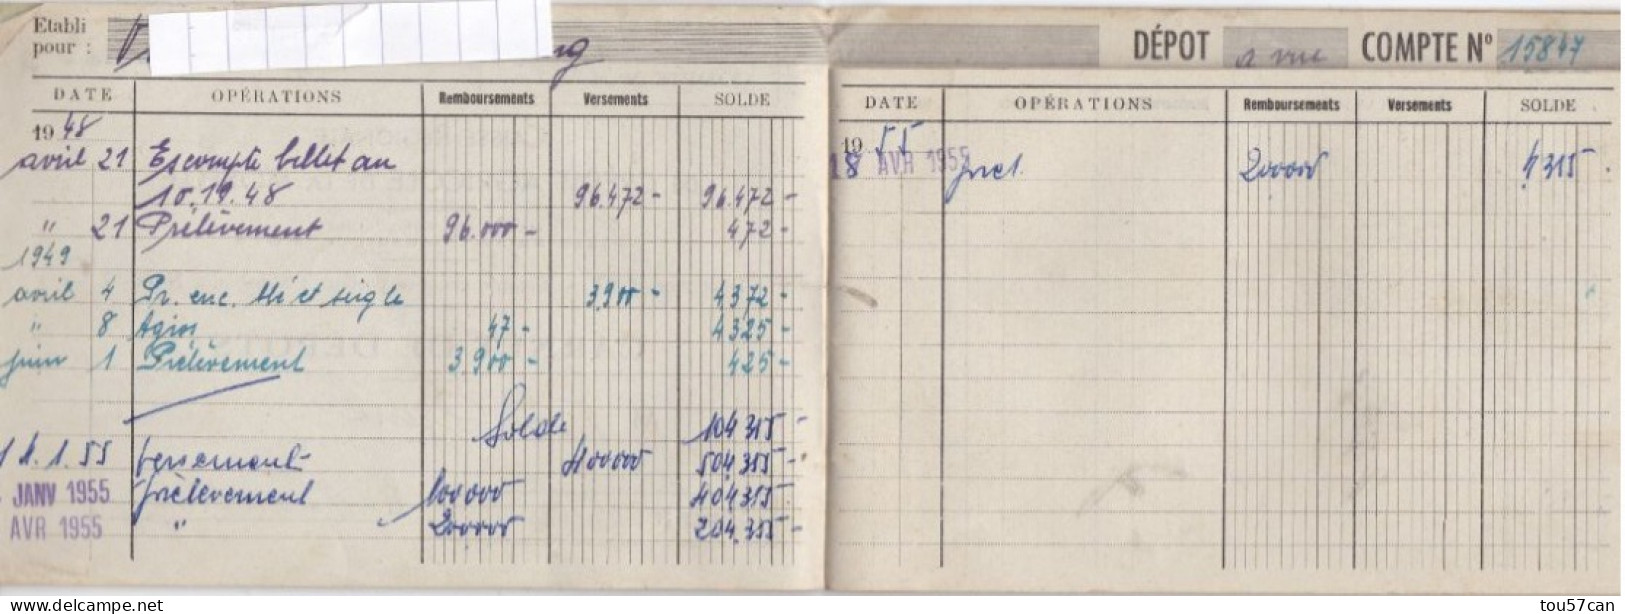 Etabli
pour :
DATE OPÉRATIONS Remboursements Versements SOLDE
1948
avril 21 Escompte billet au
10.19.48 96.472- 96.472-
" 21 Prélèvement 96.000- 472-
1949
avril 4 Pr. enc. 3.900- 4372-
" 8 Agios 47- 4325-
juin 1 Prélèvement 3.900- 425-
Solde 104 315-
1.55 versement 400000 504.315-
JANV 1955 prélèvement 100000 404315
AVR 1955 " 200000 204.315-
DÉPOT a vue COMPTE Nº 15847
DATE OPÉRATIONS Remboursements Versements SOLDE
1955
18 AVR 1955 prel. 200000 4315
tou57can